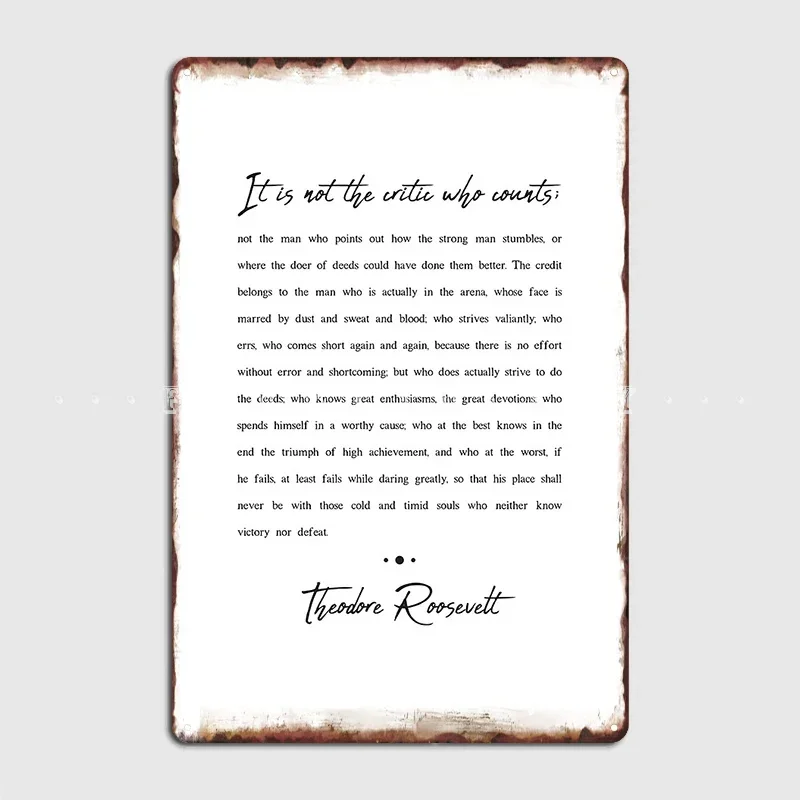 It is not the critic who counts;
not the man who points out how the strong man stumbles, or
where the doer of deeds could have done them better. The credit
belongs to the man who is actually in the arena, whose face is
marred by dust and sweat and blood; who strives valiantly; who
errs, who comes short again and again, because there is no effort
without error and shortcoming; but who does actually strive to do
the deeds; who knows great enthusiasms, the great devotions; who
spends himself in a worthy cause; who at the best knows in the
end the triumph of high achievement, and who at the worst, if
he fails, at least fails while daring greatly, so that his place shall
never be with those cold and timid souls who neither know
victory nor defeat.
Theodore Roosevelt